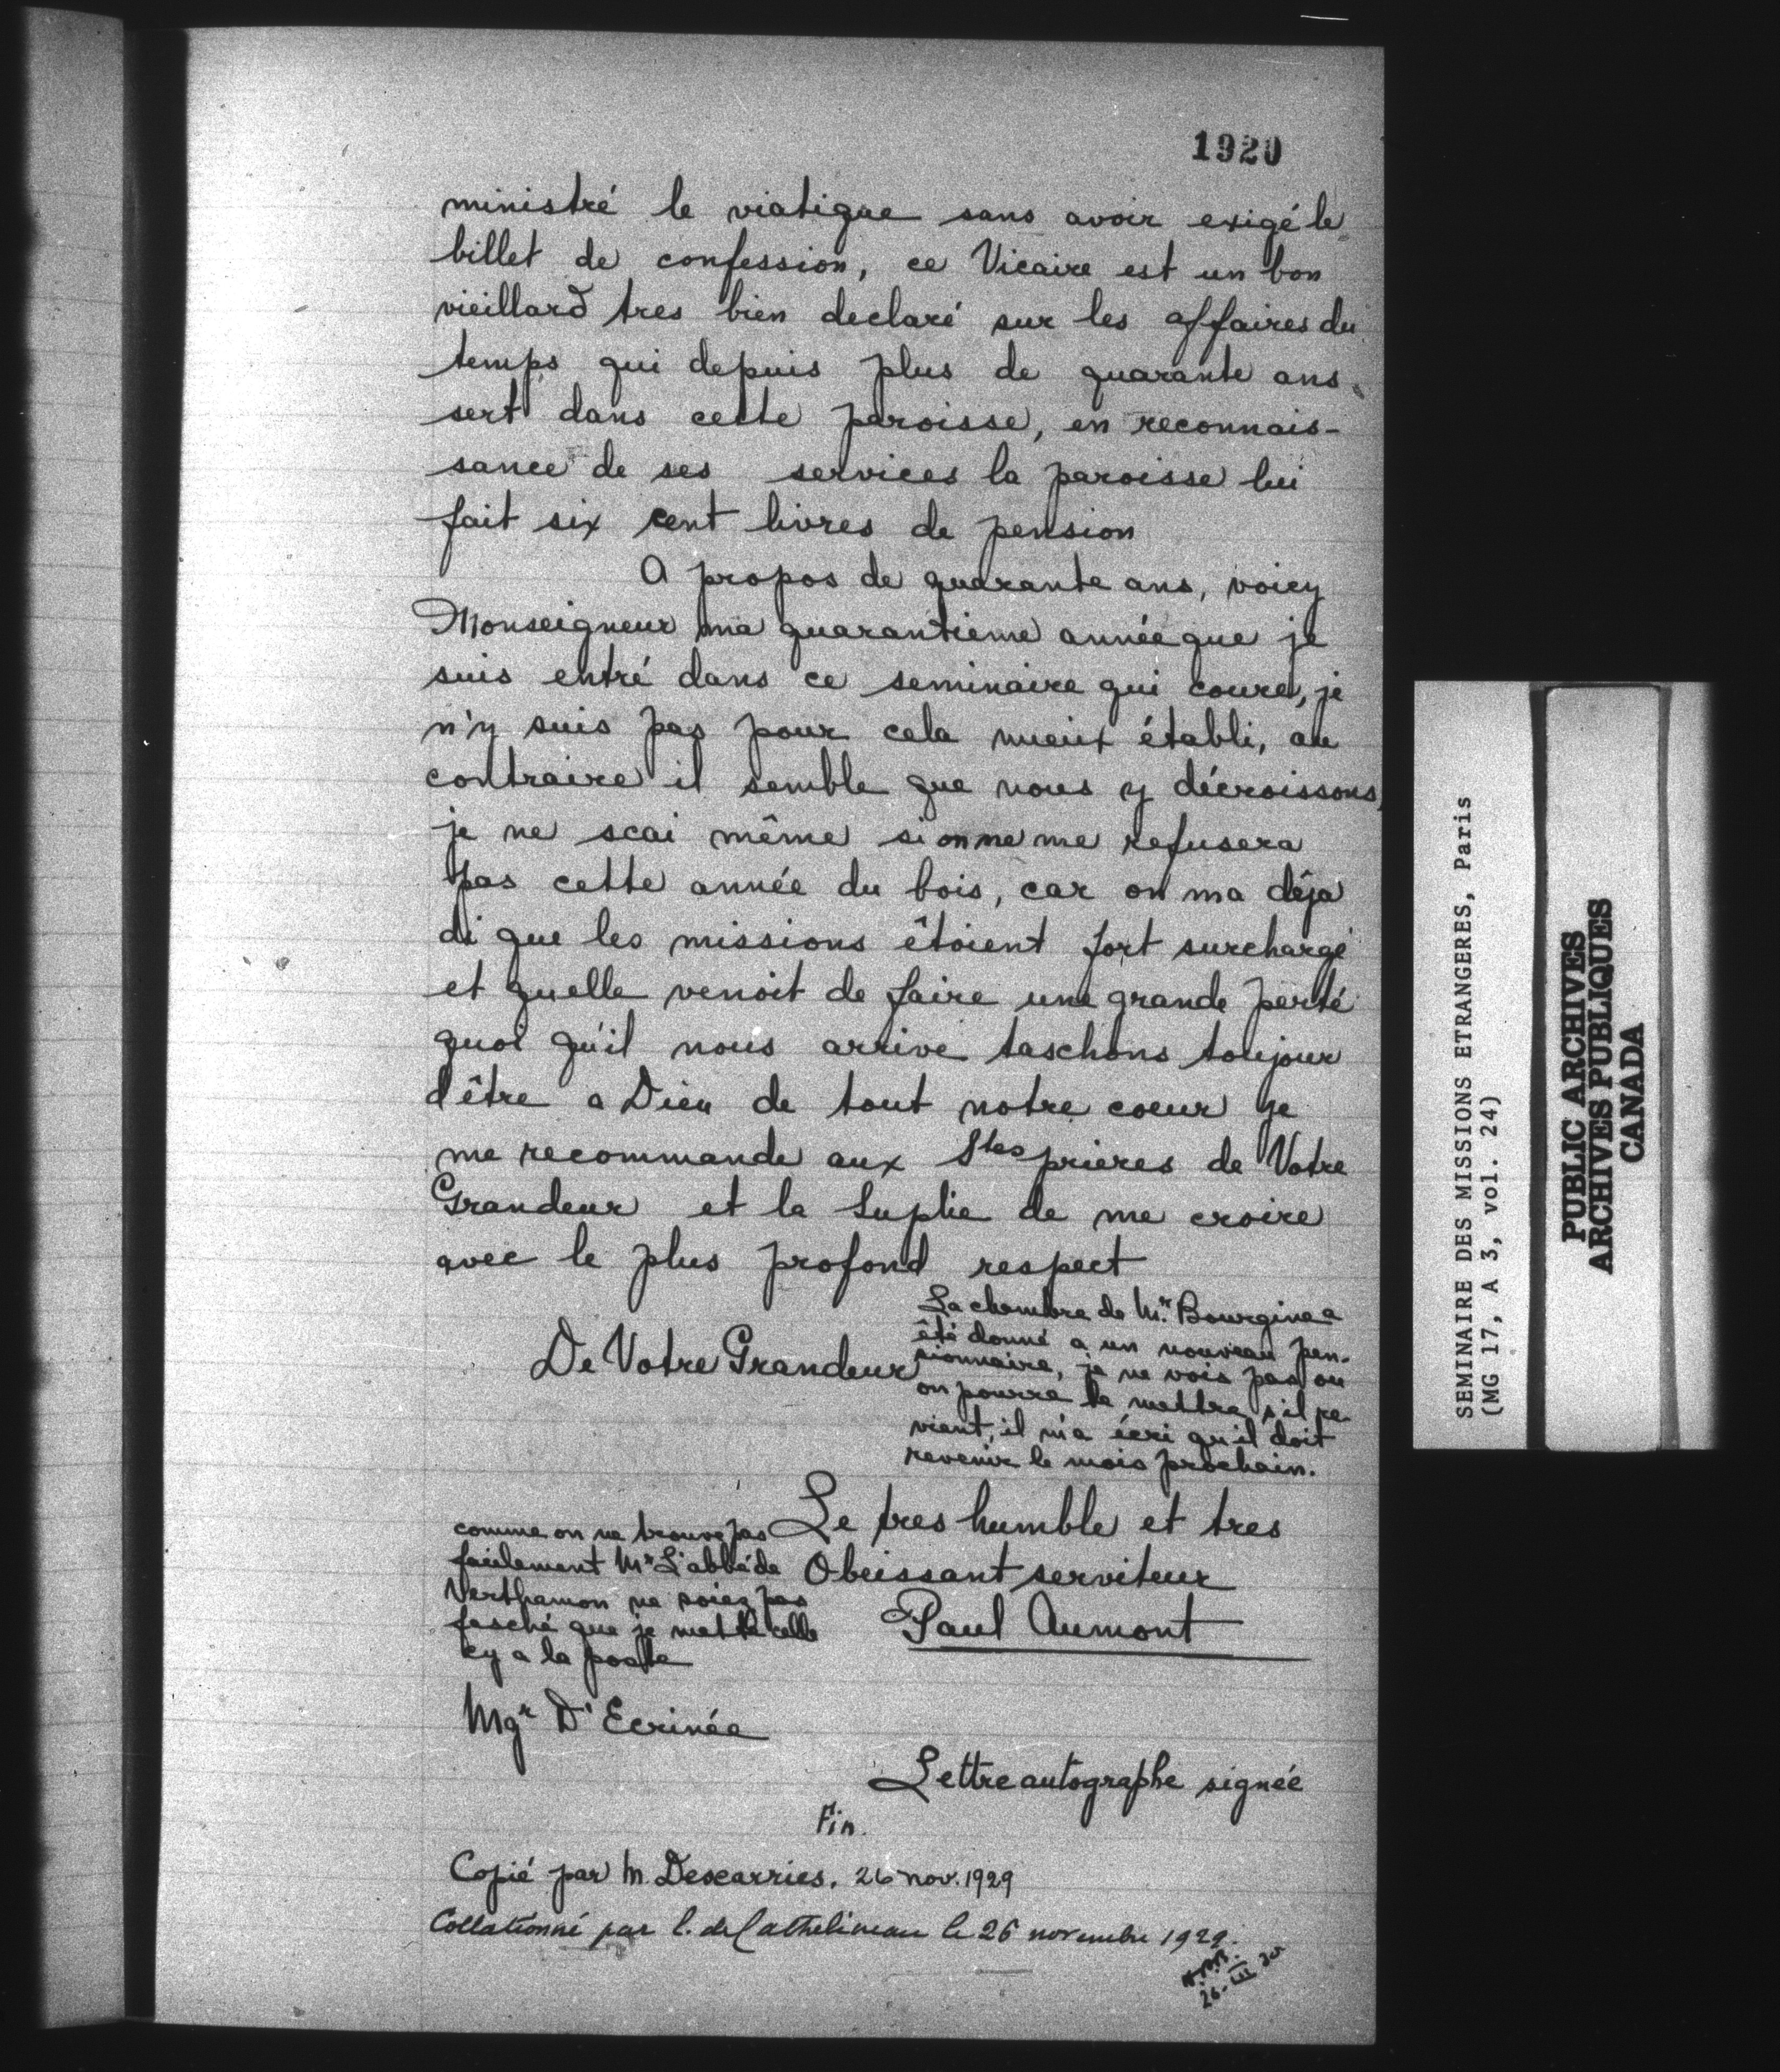 1920
ministré le viatique sans avoir exigé le
billet de confession, ce Vicaire est un bon
vieillard tres bien declaré sur les affaires du
temps qui depuis plus de quarante ans
sert dans cette paroisse, en reconnais-
sance de ses services la paroisse lui
fait six cent livres de pension
A propos de quarante ans, voicy
Monseigneur ma quarantieme année que je
suis entré dans ce seminaire qui coure, je
n'y suis pas pour cela mieux établi, au
contraire il semble que nous y décroissons,
je ne scai même si on ne me refusera
pas cette année du bois, car on ma déja
di que les missions êtoient fort surchargé
et quelle venoit de faire une grande perte
quoi qu'il nous arrive taschons toujour
d'être a Dieu de tout notre coeur je
me recommande aux Stes prieres de Votre
Grandeur et la suplie de me croire
avec le plus profond respect
De Votre Grandeur
La chambre de Mr. Bourgine a
êté donné a un nouveau pen-
sionnaire, je ne vois pas ou
on pourra le mettre s'il re-
vient, il m'a écri qu'il doit
revenir le mois prochain.
Le tres humble et tres
Obeissant serviteur
Paul Aumont
comme on ne trouve pas
facilement Mr L'abbé de
Verthamon ne soiez pas
fasché que je mette celle
cy a la poste
Mgr D'Ecrinée
Lettre autographe signée
Fin.
Copié par M. Descarries. 26 nov. 1929
Collationné par C. de Cathelineau le 26 novembre 1929.
26-III 30
SEMINAIRE DES MISSIONS ETRANGERES, Paris
(MG 17, A 3, vol. 24)
PUBLIC ARCHIVES
ARCHIVES PUBLIQUES
CANADA